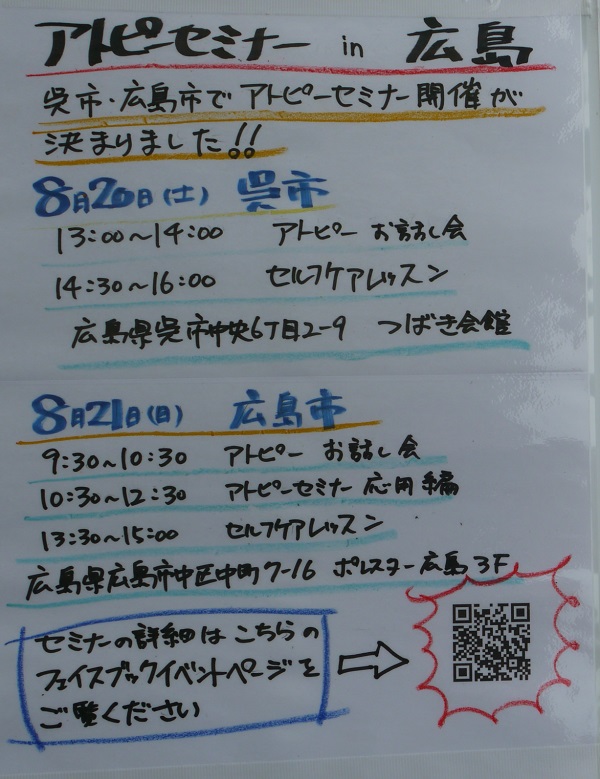 アトピーセミナー in 広島
呉市・広島市でアトピーセミナー開催が
決まりました!!
8月20日(土) 呉市
13:00〜14:00 アトピー お話し会
14:30〜16:00 セルフケアレッスン
広島県呉市中央6丁目2-9 つばき会館
8月21日(日) 広島市
9:30〜10:30 アトピー お話し会
10:30〜12:30 アトピーセミナー 応用編
13:30〜15:00 セルフケアレッスン
広島県広島市中区中町7-16 ポレスター広島3F
セミナーの詳細はこちらの
フェイスブックイベントページを
ご覧ください